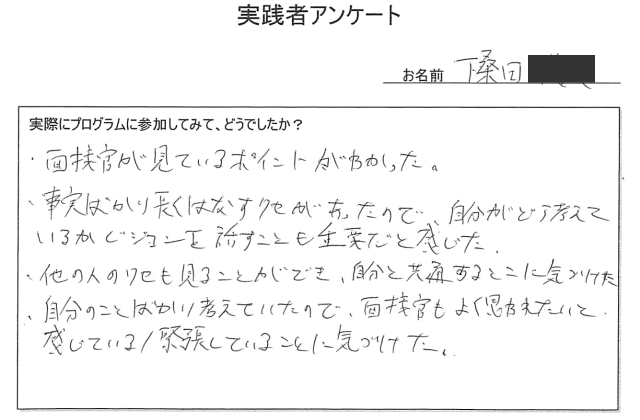 実践者アンケート
お名前 桑田
実際にプログラムに参加してみて、どうでしたか？
・面接官が見ているポイントがわかった。
・事実ばかり長くはなすクセがあったので、自分がどう考えて
いるかビジョンを話すことも重要だと感じた。
・他の人のクセも見ることができ、自分と共通するとこに気づけた
・自分のことばかり考えていたので、面接官もよく思われたいと
感じている/緊張していることに気づけた。